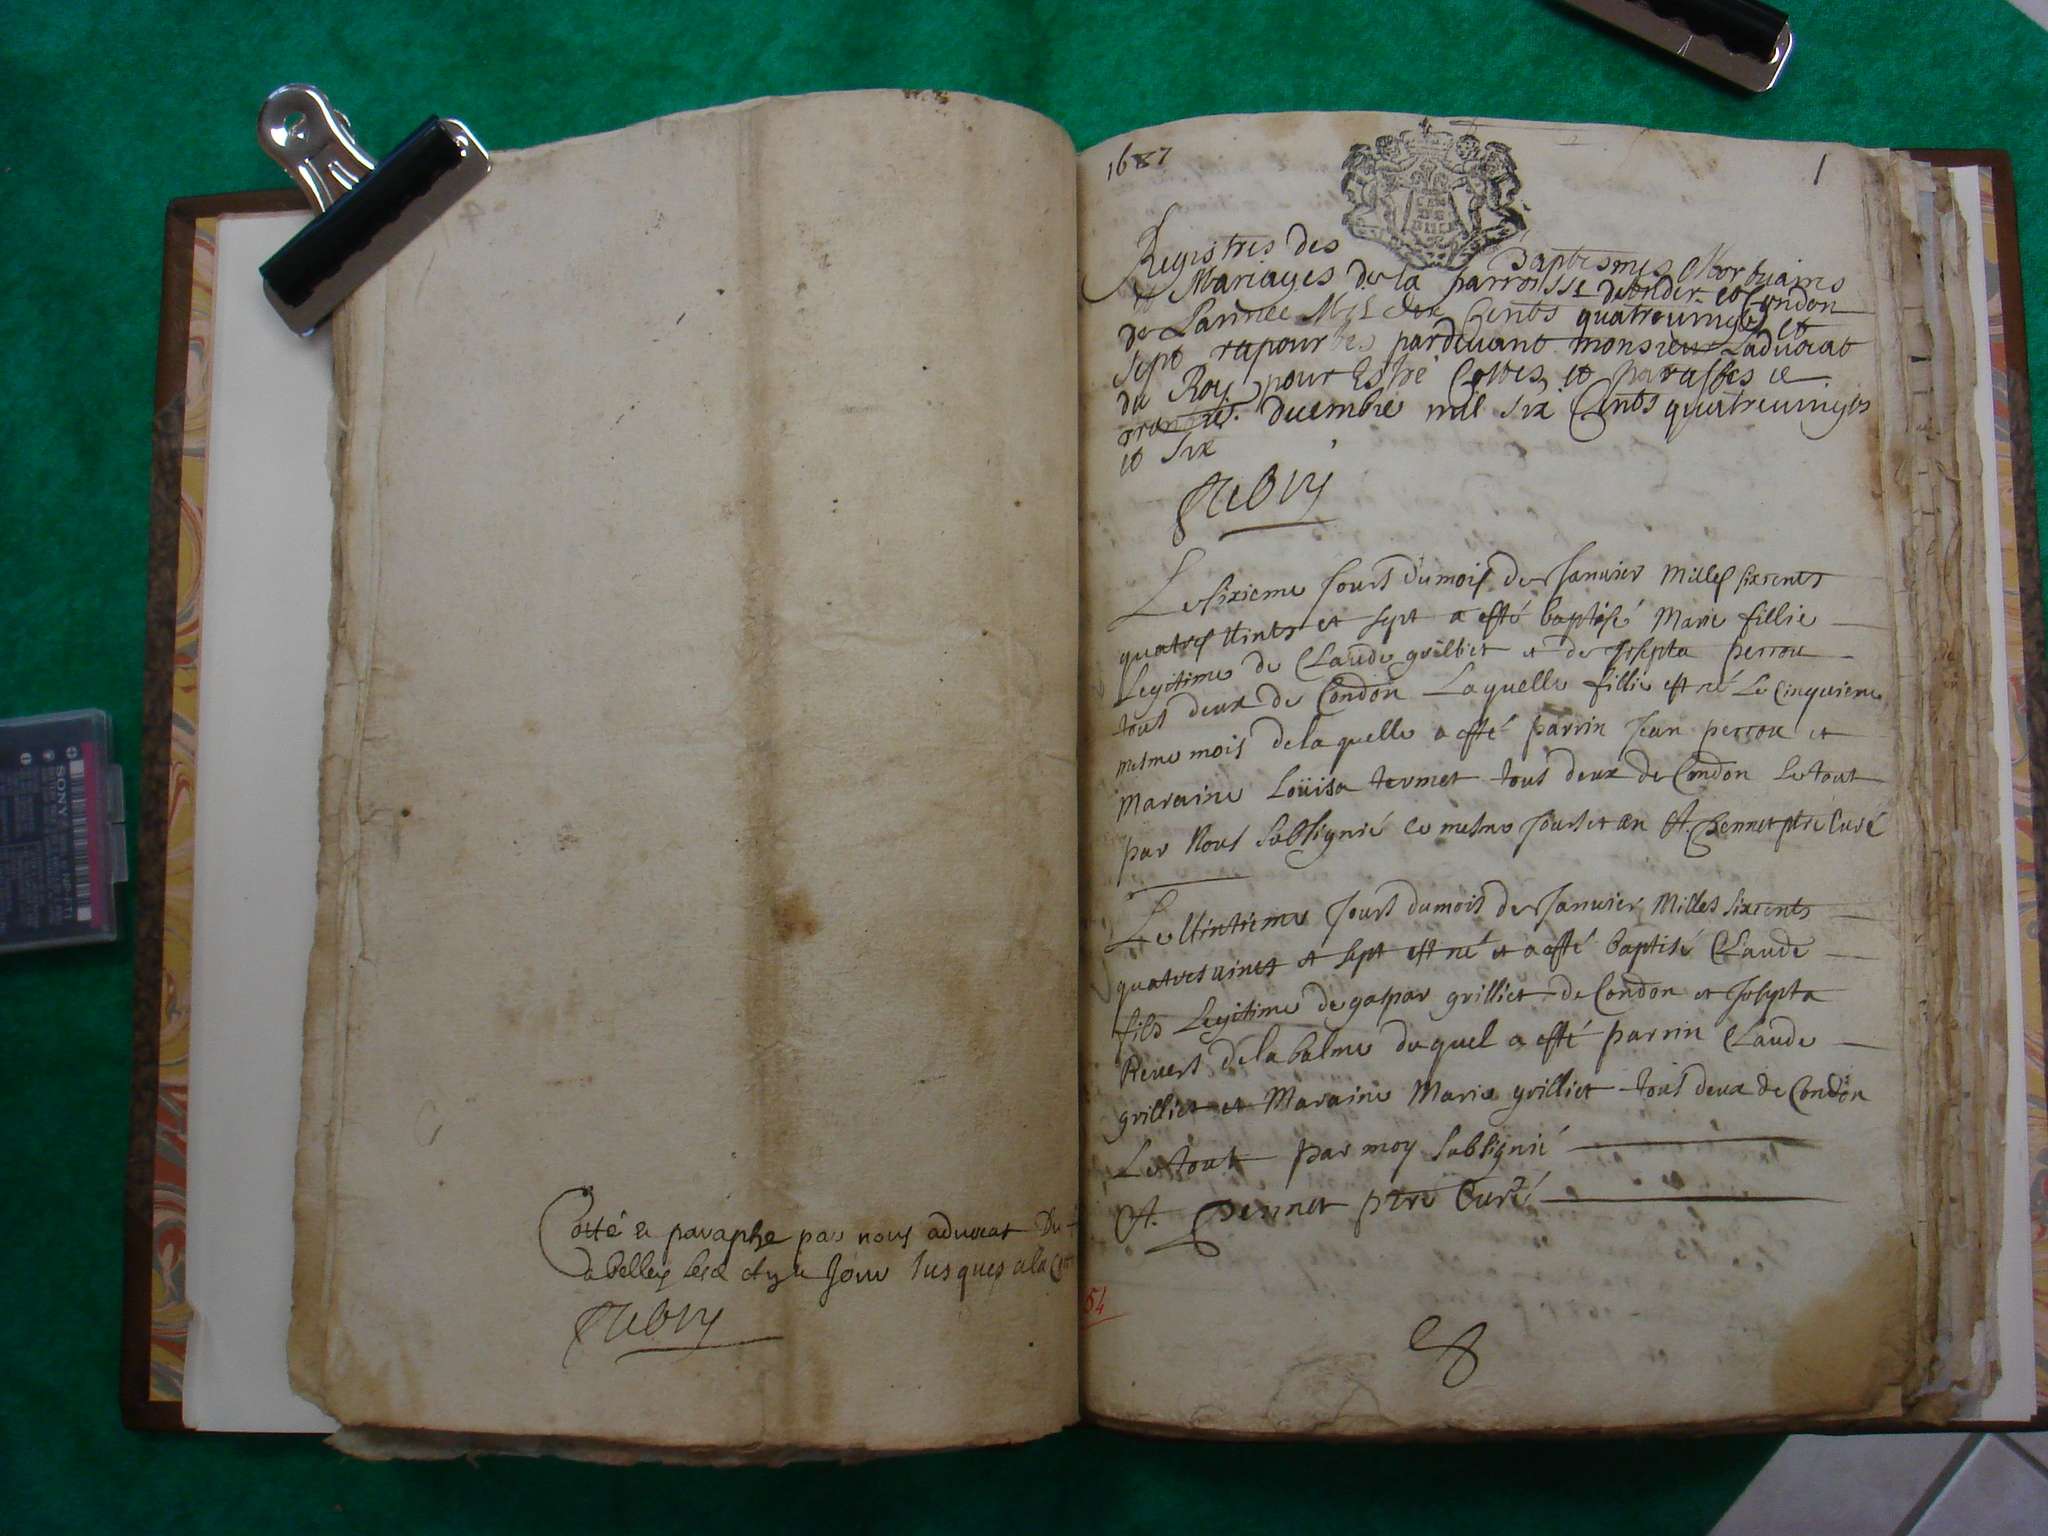 Cotté et paraphe par nous advocat Du
a belley jour jusques a la
1687
1
Registres des Baptesmes Mortuaires
et Mariages de la parroisse de et Condon
de Lannee Mil six Cents quatrevingts et
sept rapourtes pardevant monsieur Ladvocat
du Roy pour Estre Cottes et paraffes ce
decembre mil six Cents quatrevingts
et six
Le sixieme Jours du mois de Janvier Milles sixcents
quatres Vints et sept a esté baptisé Marie fillie
Legitime de Claude grilliet et de Josepta perrou
tous deux de Condon Laquelle fillie est né Le cinquieme
mesme mois de laquelle a esté parrin Jean perrou et
Maraine Loüisa termet tous deux de Condon Le tout
par Nous Subsignié ce mesme Jours et an A. Pennet ptre Curé
Le Vintieme Jours du mois de Janvier Milles Sixcents
quatres vints et sept est né et a esté baptisé Claude
fils Legitime de gaspar grilliet de Condon et Josepta
Revert de la balme duquel a esté parrin Claude
grilliet et Maraine Marie grilliet tous deux de Condon
Le tout par moy subsignié
A. Pennet ptre Curé
54
SONY